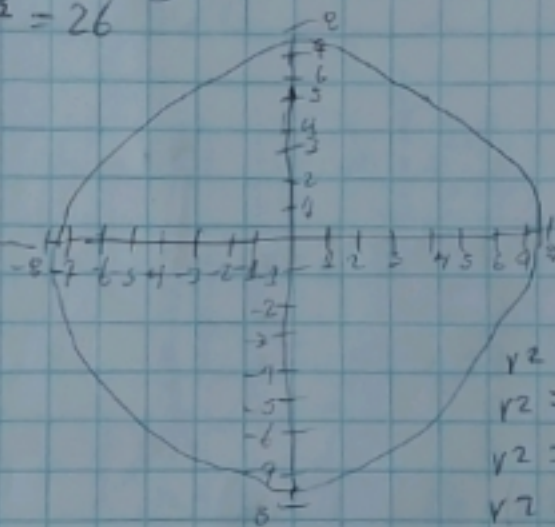 ² = 26
8
7
6
5
4
3
2
1
-8 -7 -6 -5 -4 -3 -2 -1 1 2 3 4 5 6 7
-1
-2
-3
-4
-5
-6
-7
8
r²
r² =
r² =
r²